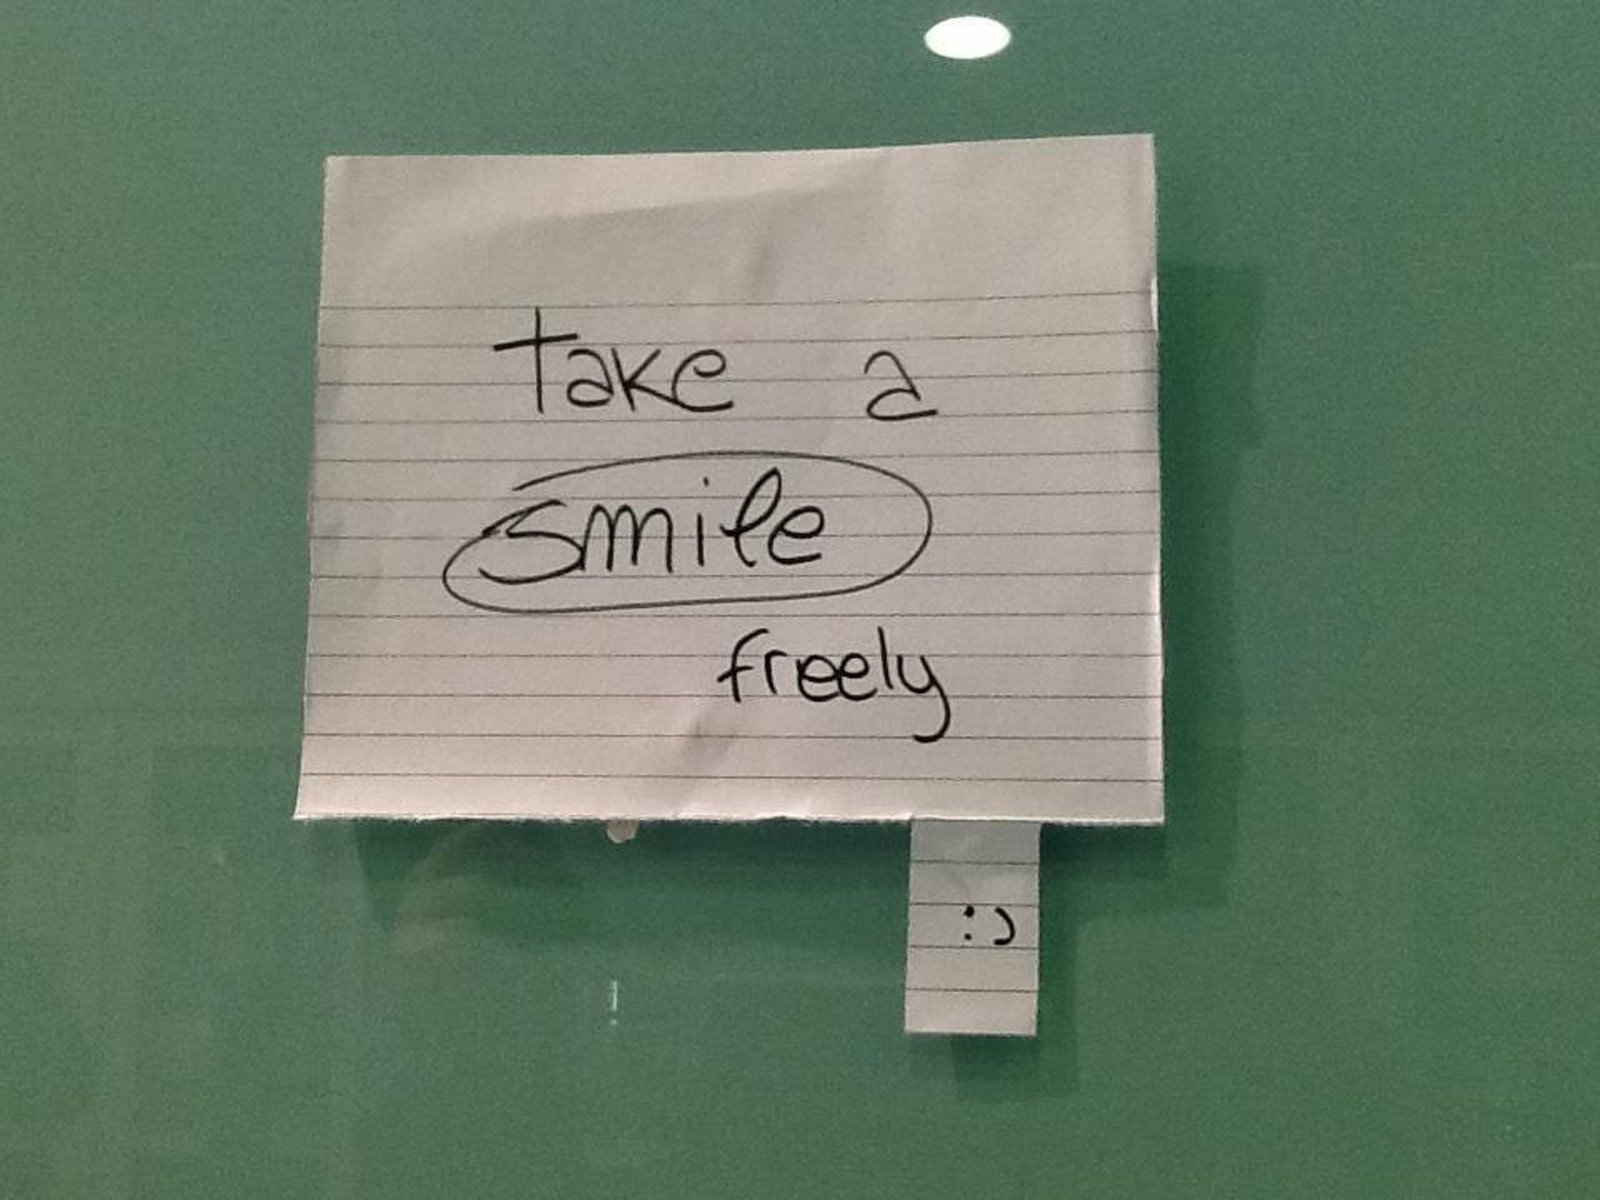 take a
smile
freely
:)